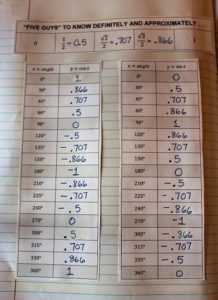 "FIVE GUYS" TO KNOW DEFINITELY AND APPROXIMATELY . . .
0 1/2 = 0.5 √2/2 = .707 √3/2 = .866 1
x = angle y = cos x
1
30° .866
45° .707
60° .5
90° 0
120° -.5
135° -.707
150° -.866
180° -1
210° -.866
225° -.707
240° -.5
270° 0
300° .5
315° .707
330° .866
360° 1
x = angle y = sin x
0° 0
30° .5
45° .707
60° .866
90° 1
120° .866
135° .707
150° .5
180° 0
210° -.5
225° -.707
240° -.866
270° -1
300° -.866
315° -.707
330° -.5
360° 0